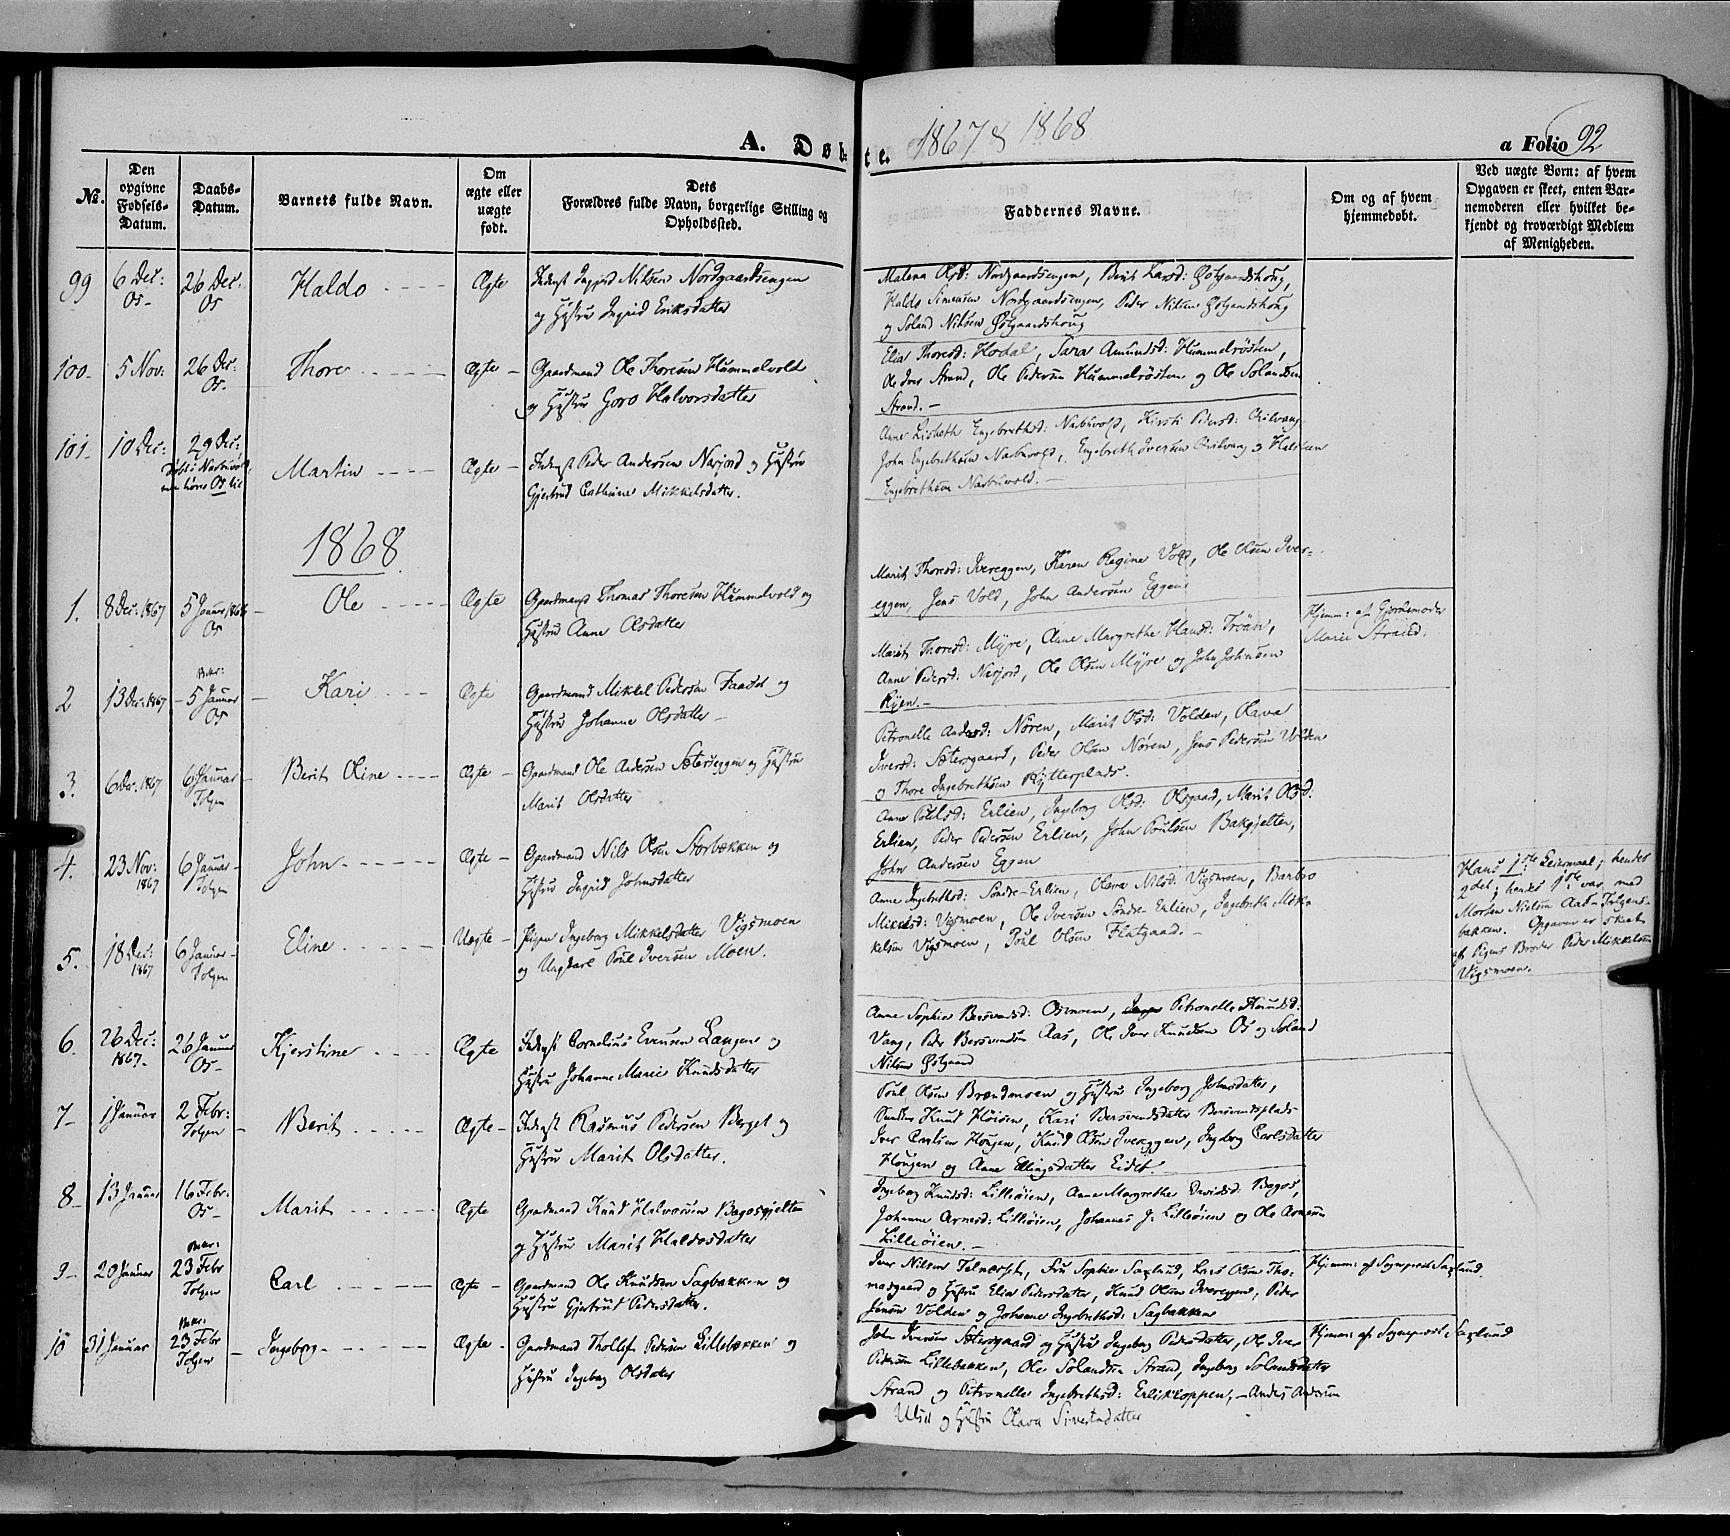 A. Døb-
te. 1867 & 1868
a Folio 92
№.
Den opgivne Fødsels-Datum.
Daabs-Datum.
Barnets fulde Navn.
Om ægte eller uægte født.
Dets
Forældres fulde Navn, borgerlige Stilling og
Opholdssted.
Faddernes Navne.
Om og af hvem
hjemmedøbt.
Ved uægte Børn: af hvem
Opgaven er skeet, enten Bar-
nemoderen eller hvilket be-
kjendt og troværdigt Medlem
af Menigheden.
99 6 Dec: Os- 26 Dec. Os Haldo Ægte Inderst Nilsen Nordgaardsengen
og Hustru Ingrid Eriksdatter
Malena Olsd: Nordgaardsengen, Berit Larsd: Østgaardshoug,
Haldo Simensen Nordgaardsengen, Peder Nilsen Østgaardshoug
og Soland Nilsen Østgaardshoug
100- 5 Nov: 26 Dec: Os. Thore Ægte Gaardmand Ole Thoresen Hummelvold
og Hustru Goro Halvorsdatter
Thoresd: Hodal, Sara Amundsd: Hummelrösten,
Ole Iver Strand, Ole Pedersen Hummelrösten og Ole Solandsen
Strand.-
101- 10 Dec: 29 Dec: Martin Ægte Inderst Peder Andersen Narjord og Hustru
Gjertrud Cathrine Mikkelsdatter.
Anne Lisbeth Engebrethsd: Kirsti Pedersd:
John Engebrethsen Engebreth Iversen og
Engebrethsen
1868
1. 8 Dec: 1867 5 Januar 1868 Os Ole Ægte Gaardmand Thomas Thoresen Hummelvold og
Hustru Anne Olsdatter
Marit Thoresd: Ivereggen, Karen Regine Vold, Ole Olsen Iver-
eggen, Jens Vold, John Andersen Eggen
2 13 Dec: 1867 Bekr: 5 Januar Os Kari Ægte Gaardmand Mikkel Pedersen Faaset og
Hustru Johanne Olsdatter
Marit Thoresd: Myre, Anne Margrethe Hansd: Tröäen,
Anne Pedersd: Narjord, Ole Olsen Myre og John Johnsen
Ryen.-
Hjem: af Gjordemoder
Marie Strand.
3. 6 Dec. 1867 6 Januar Tolgen Berit Oline Ægte Gaardmand Ole Andersen Sæterseggen og Hustru
Marit Olsdatter
Petronelle Andersd: Nören, Marit Olsd: Volden, Olava
Iversd: Sætersgaard, Peder Olsen Nören, Jens Pedersen Volden
og Thore Ingebrethsen Rytterplads.
4. 23 Nov: 1867 6 Januar Tolgen John Ægte Gaardmand Nils Olsen Storbækken og
Hustru Ingrid Johnsdatter
Anne Poulsd: Erlien, Ingeborg Olsd: Olsgaard, Marit Olsd.
Erlien, Peder Pedersen Erlien, John Poulsen Bakgjelten,
John Andersen Eggen
5. 18 Dec: 1867 6 Januar Tolgen Eline Uægte Pigen Ingeborg Mikkelsdatter Vigsmoen
og Ungkarl Poul Iversen Moen.
Anne Ingebrethsd: Söndre-Erlien, Olava Nilsd: Vigsmoen, Barbro
Mikkelsd: Vigsmoen, Ole Iversen Söndre-Erlien, Ingebreth Mik-
kelsen Vigsmoen, Poul Olsen Flatgaard.-
Hans 1ste Leiermaal; hendes
2det; hendes 1ste var med
Morten Nielsen Aas- Tolgens-
bakken. Opgaven er skeet
af Pigens Broder Peder Mikkelsen
Vigsmoen.
6. 26 Dec: 1867- 26 Januar Os- Kjerstine Ægte Inderst Cornelius Evensen Langen og
Hustru Johanne Marie Knudsdatter
Anne Sophie Bersvendsd: Osmoen, Petronelle Knudsd:
Vang, Peder Bersvendsen Aas, Ole Iver Knudsen Os og Soland
Nilsen Østgaard
7- 1 Januar 2 Febr: Tolgen Berit Ægte Inderst Rasmus Pedersen Berget og
Hustru Marit Olsdatter.
Poul Olsen Brændmoen og Hustru Ingeborg Johnsdatter,
Knud Höiöien, Kari Bersvendsdatter Bersvendsplads
Iver Carlsen Hougen, Knud Olsen Ivereggen, Ingeborg Carlsdatter
Hougen og Anne Ellingsdatter Eidet.
8- 13 Januar 16 Febr: Os- Marit Ægte Gaardmand Knud Halvorsen Bagosgjelten
og Hustru Marit Haldosdatter
Ingeborg Knudsd: Lilleöien, Anne Margrethe Davidsd: Bagos,
Johanne Arnesd: Lilleöien, Johannes J: Lilleöien og Ole Arnesen
Lilleöien.-
9- 20 Januar Bekr: 23 Febr Tolgen Carl Ægte Gaardmand Ole Knudsen Sagbakken og
Hustru Gjertrud Pedersdatter.
Iver Nilsen Telneset, Fru Sophie Saxlund, Lars Olsen Tho-
masgaard og Hustru Pedersdatter, Knud Olsen Ivereggen, Peder
Jensen Volden og Johanne Ingebrethsd: Sagbakken
Hjemm: af Sogneprest Saxlund.
10 31 Januar Bekr: 23 Febr Tolgen Ingeborg Ægte Gaardmand Thollef Pedersen Lillebækken og
Hustru Ingeborg Olsdatter
John Iversen Sætersgaard og Hustru Ingeborg Pedersdatter, Ole Iver
Pedersen Lillebækken, Ole Solandsen Strand, Ingeborg Solandsdatter
Strand og Petronelle Ingebrethsd: Erlikloppen, - Anders Andersen
Ulset og Hustru Olava Sivertsdatter
Hjemm: af Sogneprest Saxlund